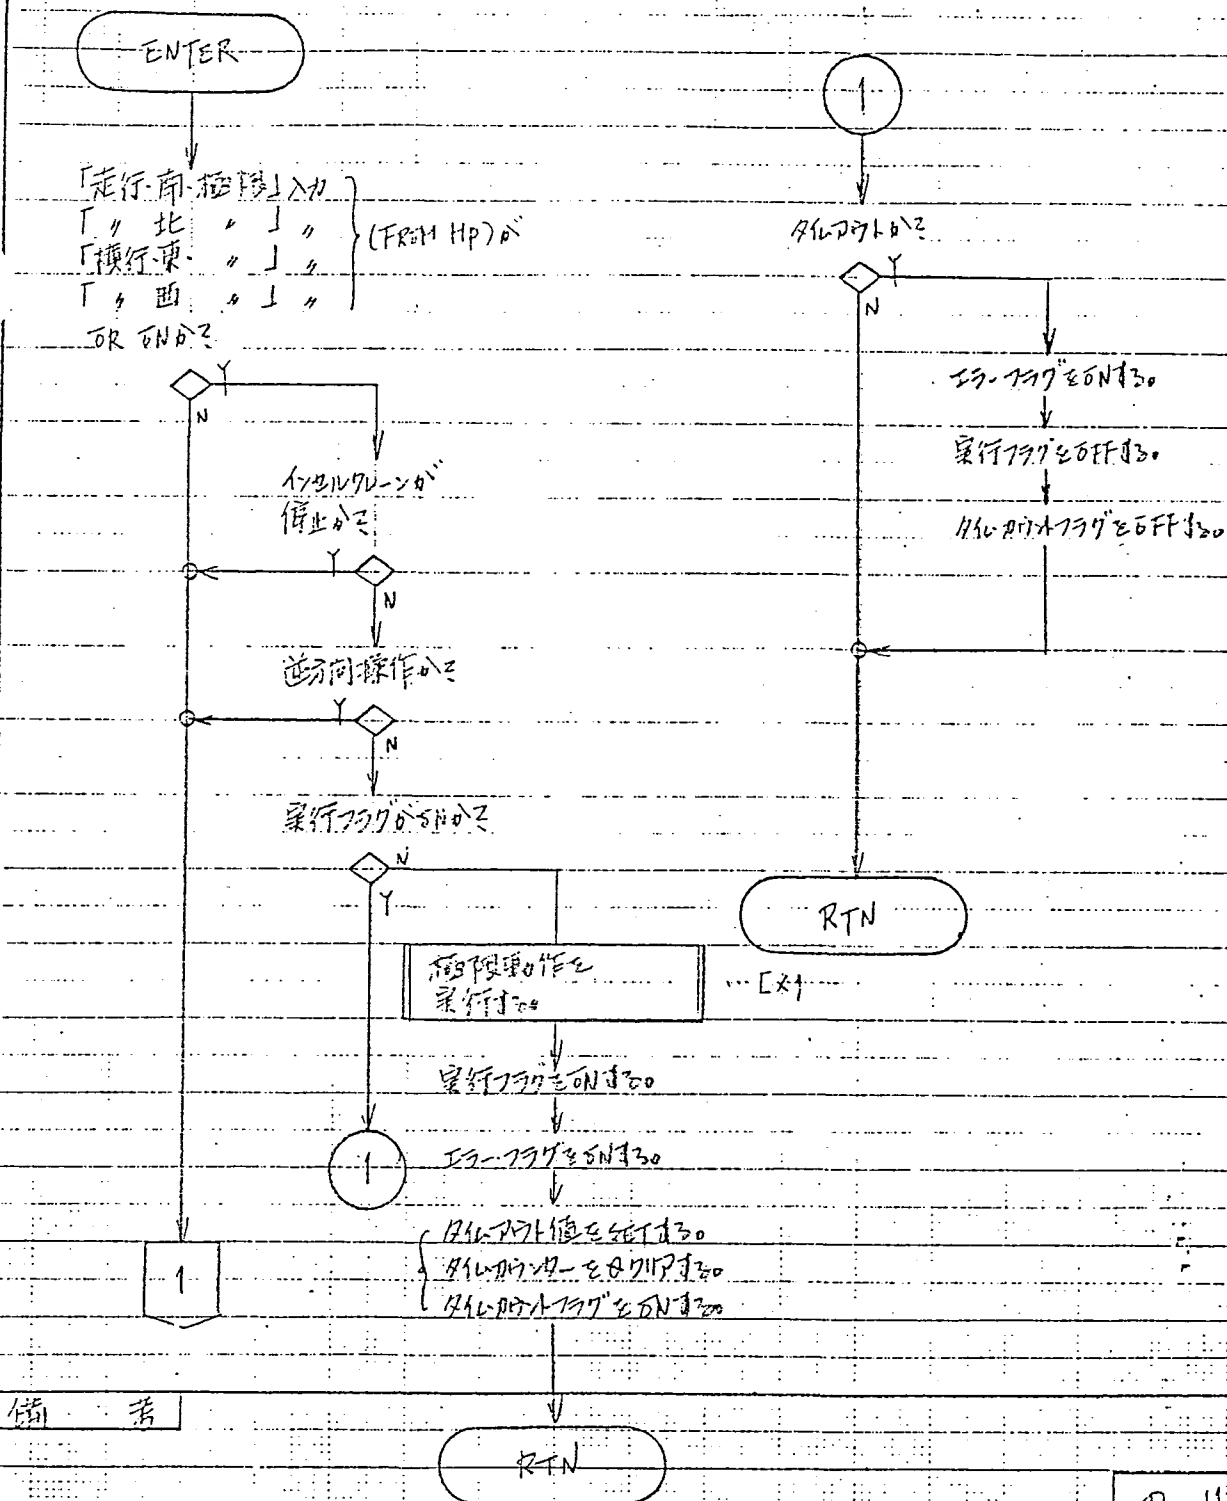 ENTER
「走行・南・極限」入力
「 〃 北 〃 」 〃
「横行・東・ 〃 」 〃
「 〃 西 〃 」 〃
(FROM HP)が
OR ONか?
Y
N
インセルクレーンが
停止か?
Y
N
逆方向操作か?
Y
N
実行フラグがONか?
N
Y
極限動作を
実行する。
…[※1
実行フラグをONする。
1
エラーフラグをONする。
タイムアウト値をSETする。
タイムカウンターをθクリアする。
タイムカウントフラグをONする。
1
RTN
備 考
1
タイムアウトか?
Y
N
エラーフラグをONする。
実行フラグをOFFする。
タイムカウントフラグをOFFする。
RTN